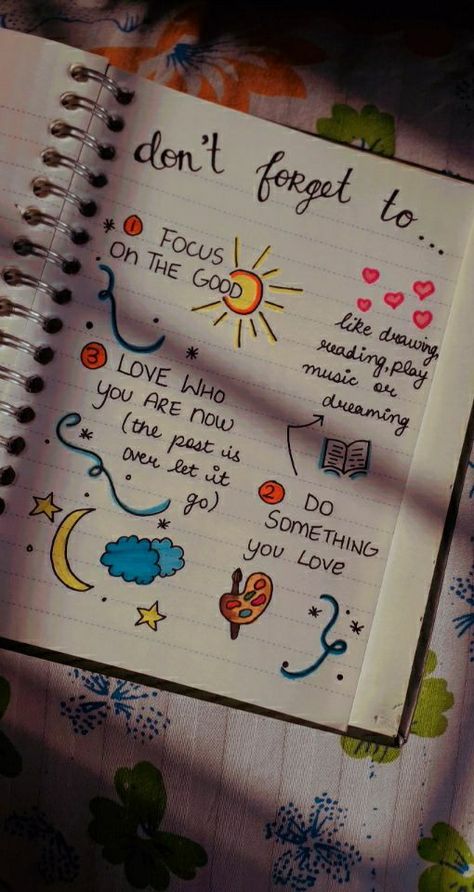 don't forget to...
1 FOCUS
ON THE GOOD
2 DO
SOMETHING
YOU LOVE
like drawing,
reading, play
music or
dreaming
3 LOVE WHO
YOU ARE NOW
(the past is
over let it
go)